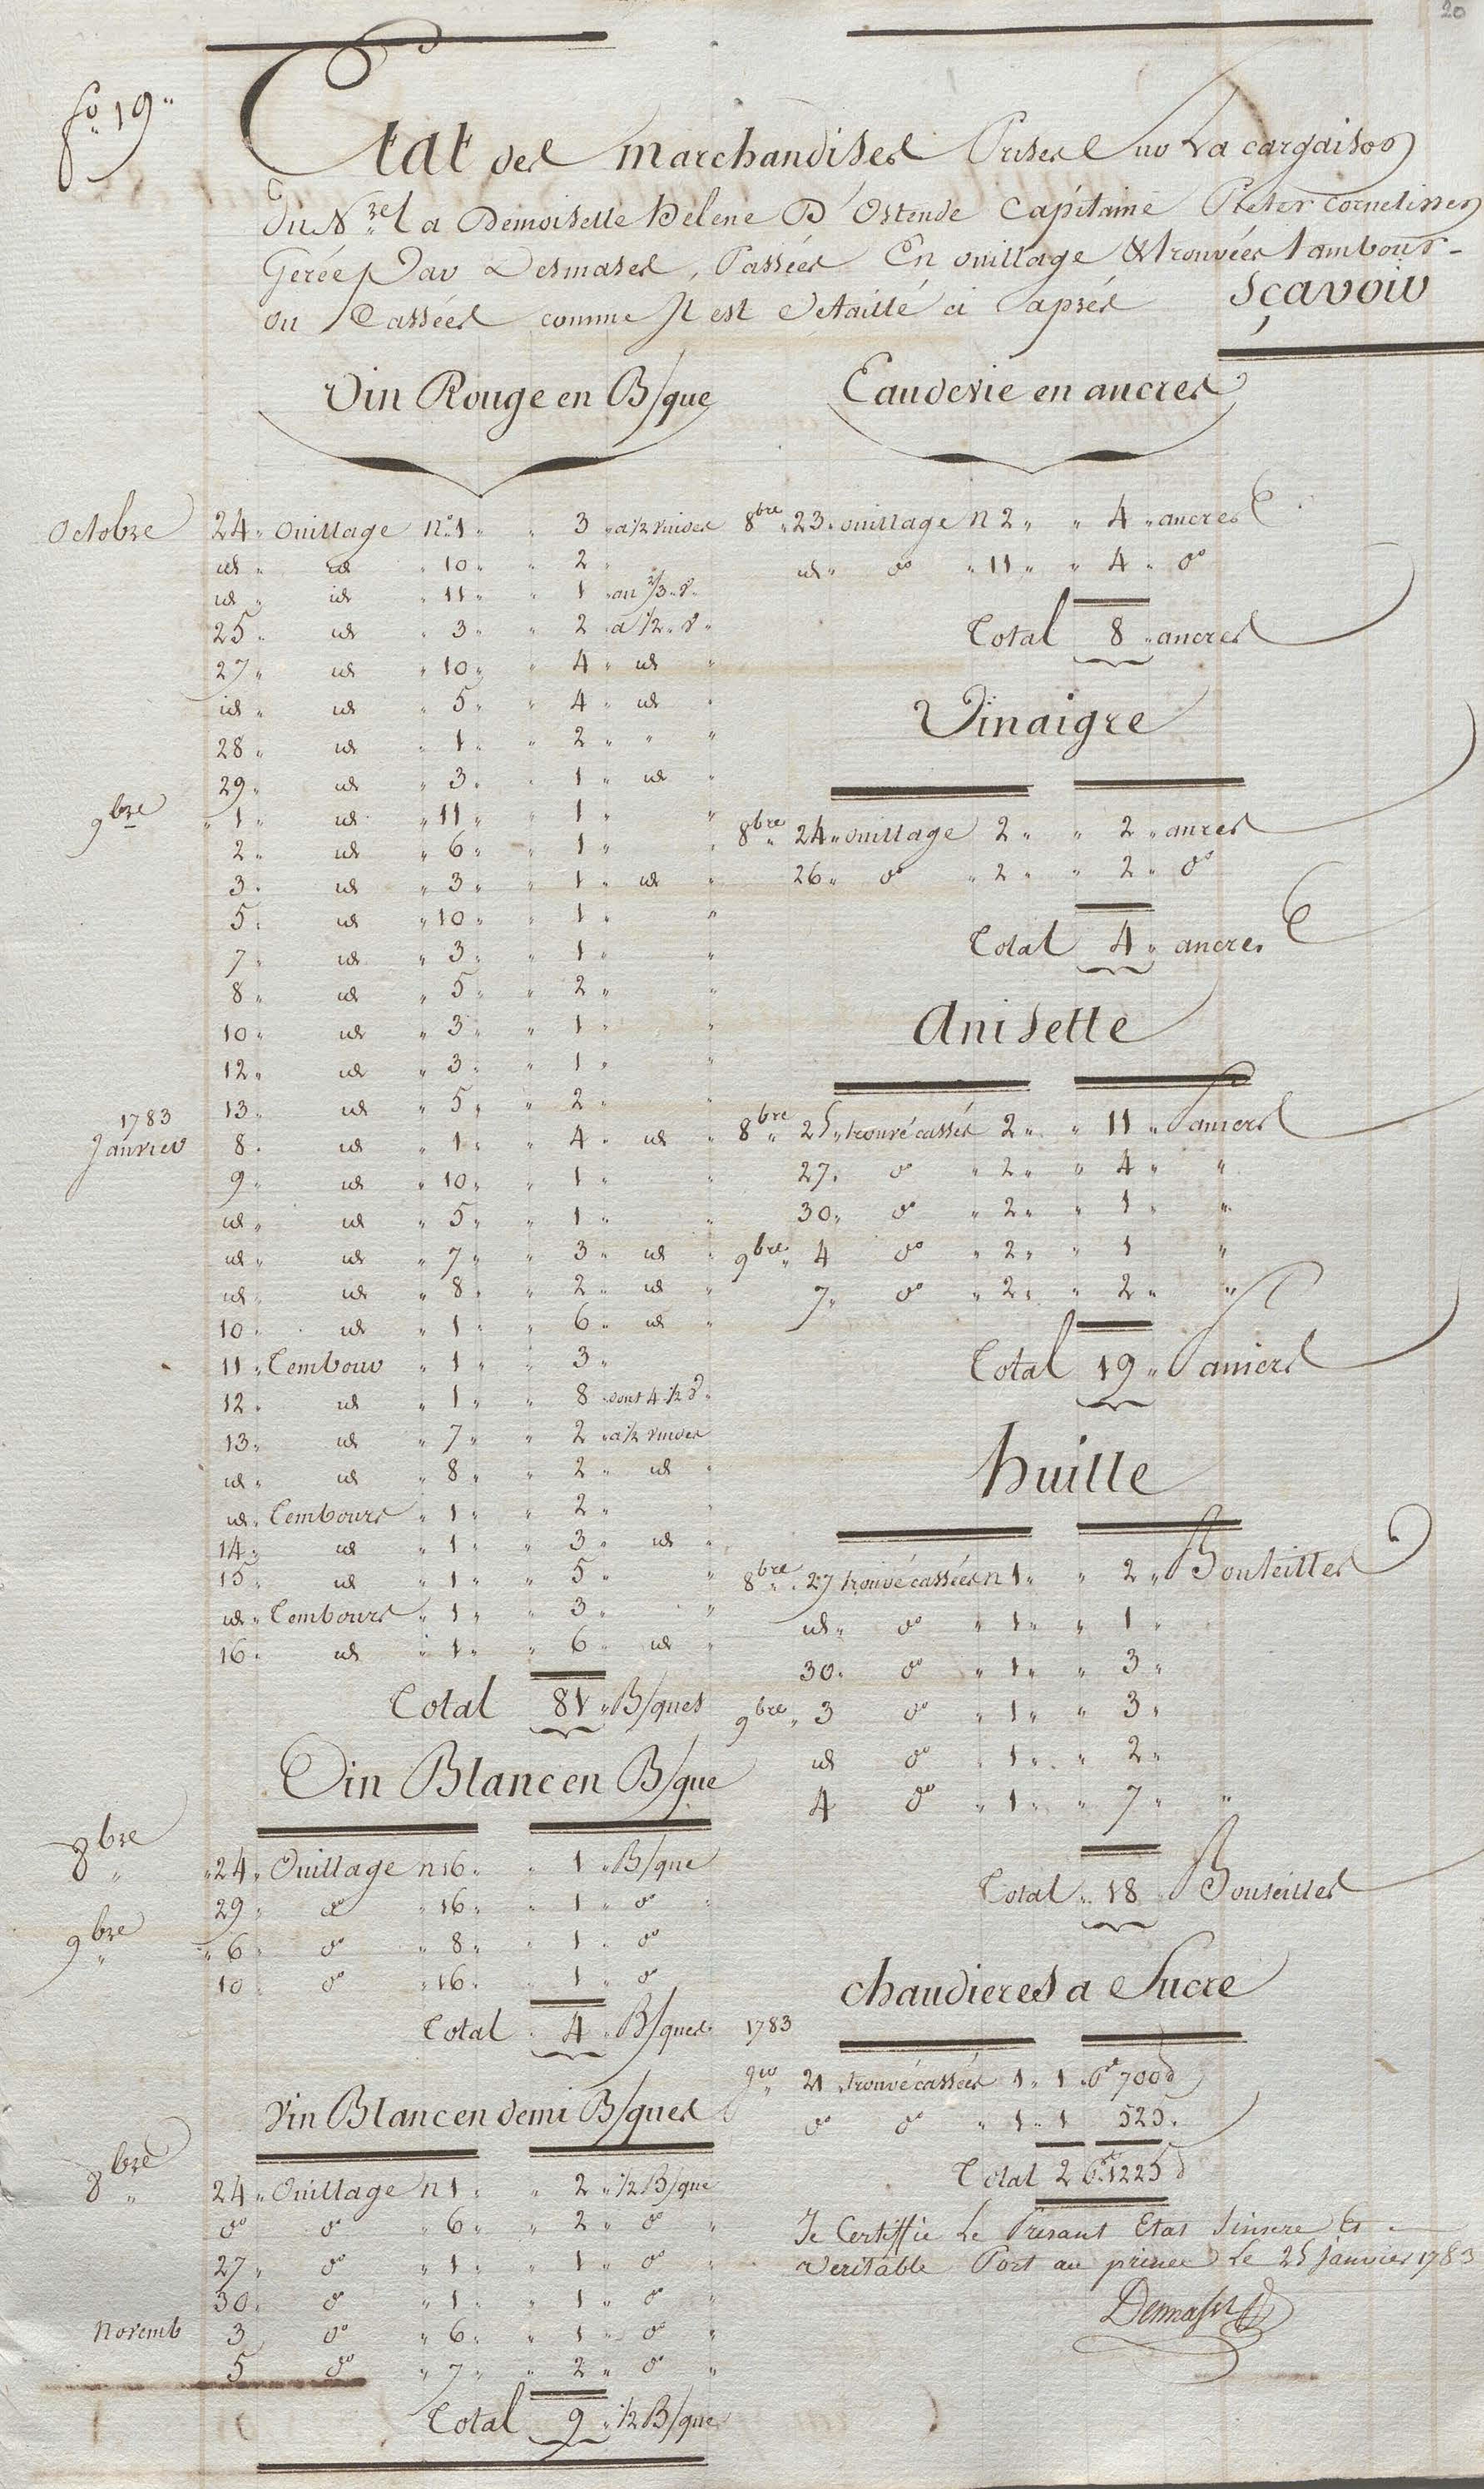 20
fo 19
Etat des marchandises Prises Sur La cargaison
Du N.re La Demoiselle helene D'Ostende Capitaine Pieter Cornelissen
Gerée Par Desmases, Passées En ouillage & trouvées tambours
ou Cassées comme Il est Detaillé ci aprés Sçavoir
Vin Rouge en B/que
Octobre 24 " Ouillage n.o 1 " " 3 " a 1/2 vuides
id " id " 10 " " 2 "
id " id " 11 " " 1 " au 2/3 " d "
25 " id " 3 " " 2 " a 1/2 " d "
27 " id " 10 " " 4 " id "
id " id " 5 " " 4 " id "
28 " id " 1 " " 2 " " "
29 " id " 3 " " 1 " id "
9bre " 1 " id " 11 " " 1 " "
2 " id " 6 " " 1 " "
3 " id " 3 " " 1 " id "
5 " id " 10 " " 1 " "
7 " id " 3 " " 1 " "
8 " id " 5 " " 2 " "
10 " id " 3 " " 1 " "
12 " id " 3 " " 1 " "
13 " id " 5 " " 2 " "
1783
Janvier 8 " id " 1 " " 4 " id "
9 " id " 10 " " 1 " "
id " id " 5 " " 1 " "
id " id " 7 " " 3 " id "
id " id " 8 " " 2 " id "
10 " id " 1 " " 6 " id "
11 " Tembour " 1 " " 3 "
12 " id " 1 " " 8 " dont 4 1/2 d "
13 " id " 7 " " 2 " a 1/2 vuides
id " id " 8 " " 2 " id "
id " Tembours " 1 " " 2 " "
14 " id " 1 " " 3 " id "
15 " id " 1 " " 5 " "
id " Tembours " 1 " " 3 " "
16 " id " 1 " " 6 " id "
Total 81 " B/ques
Vin Blanc en B/que
8bre " 24 " Ouillage n 16 " " 1 " B/que
29 " do " 16 " " 1 " do "
9bre " 6 " do " 8 " " 1 " do
10 " do " 16 " " 1 " do
Total " 4 " B/ques
Vin Blanc en demi B/ques
8bre 24 " Ouillage n 1 " " 2 " 1/2 B/que
do do " 6 " " 2 " do "
27 " do " 1 " " 1 " do "
30 " do " 1 " " 1 " do "
Novemb 3 do " 6 " " 1 " do "
5 do " 7 " " 2 " do "
Total 9 " 1/2 B/que
Eau de vie en ancres
8bre " 23 " ouillage n 2 " " 4 " ancres
id " do " 11 " " 4 " do
Total 8 " ancres
Vinaigre
8bre " 24 " ouillage 2 " " 2 " anres
26 " do " 2 " " 2 " do
Total 4 " ancres
Anisette
8bre " 25 " trouvé cassés 2 " " 11 " Paniers
27 " do " 2 " " 4 " "
30 " do " 2 " " 1 " "
9bre " 4 do " 2 " " 1 "
7 " do " 2 " " 2 " "
Total 19 " Paniers
huille
8bre " 27 trouvé cassées n 1 " " 2 " Bouteilles
id " do " 1 " " 1 "
30 " do " 1 " " 3 "
9bre " 3 do " 1 " " 3 "
id do " 1 " " 2 "
4 do " 1 " " 7 " "
Total " 18 " Bouteilles
chaudieres a Sucre
1783
21 " trouvé cassées 1 " 1 " 700
do do " 1 " 1 525 "
Total 2 1225
Je Certiffie Le Presant Etat Sinsere Et
Veritable Port au prince Le 25 Janvier 1783
Demases